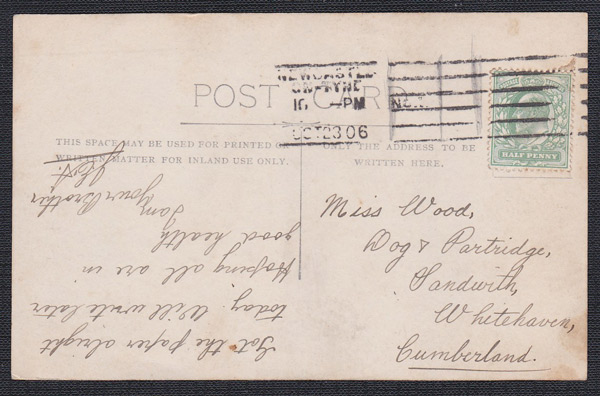 POST CARD
NEWCASTLE
ON-TYNE
10 -PM
OCT 23 06
HALF PENNY
THIS SPACE MAY BE USED FOR PRINTED OR
WRITTEN MATTER FOR INLAND USE ONLY.
ONLY THE ADDRESS TO BE
WRITTEN HERE.
Got the paper alright
today. Will write later
Hoping all are in
good health
I am
Your Brother
Miss Wood,
Dog & Partridge,
Sandwith,
Whitehaven,
Cumberland.